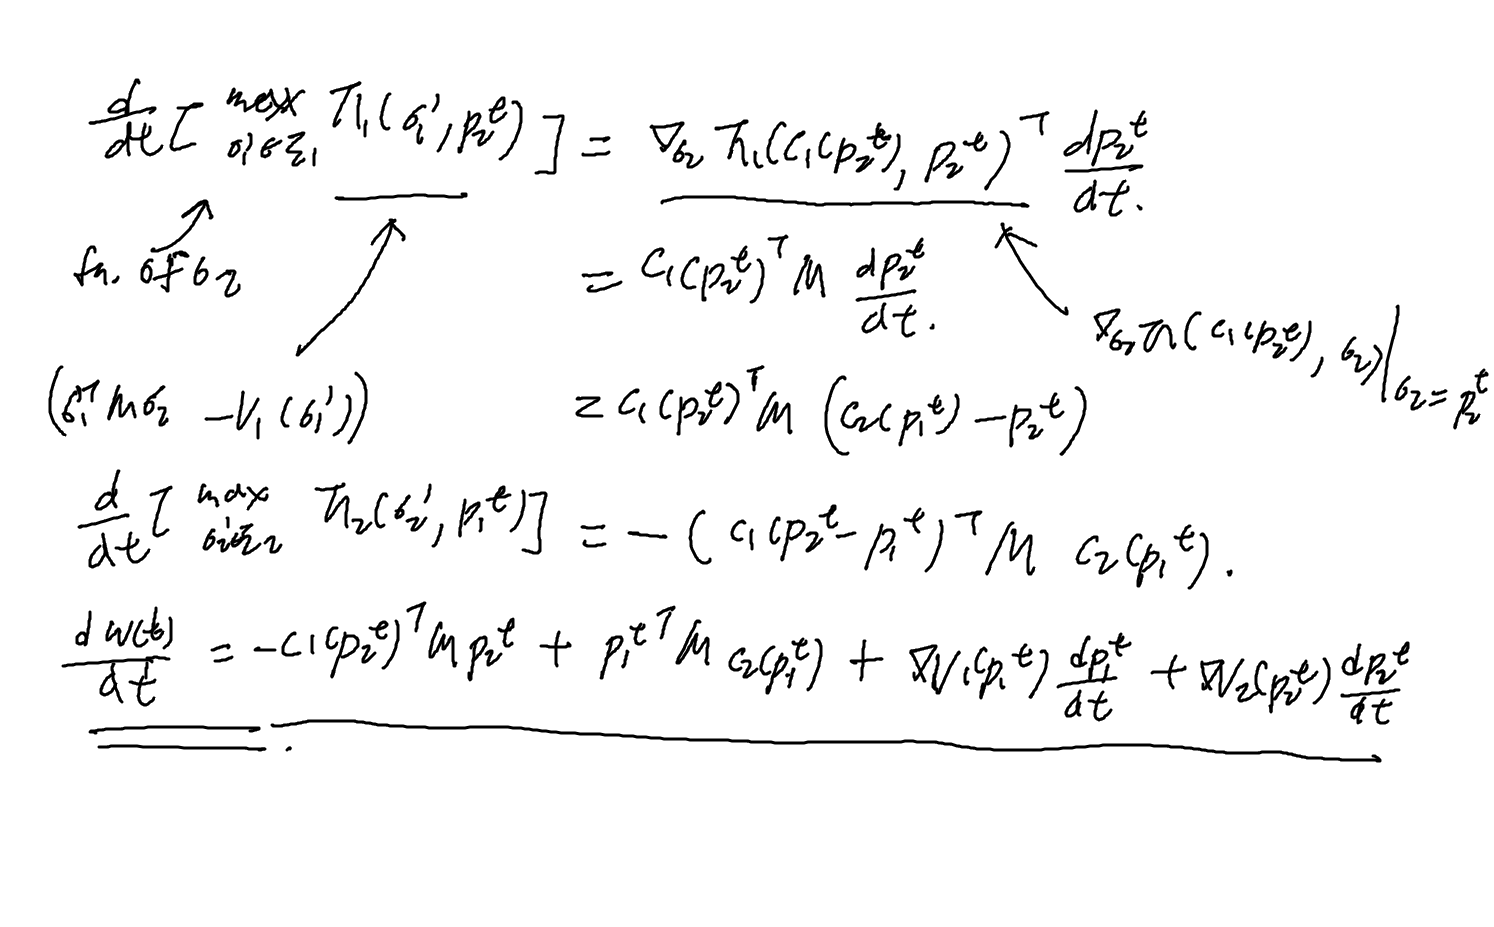 d/dt [ max_{σ₁'∈Σ₁} π₁(σ₁', p₂ᵗ) ] = ∇_{σ₂} π₁(C₁(p₂ᵗ), p₂ᵗ)ᵀ dp₂ᵗ/dt.
fn. of σ₂
= C₁(p₂ᵗ)ᵀ M dp₂ᵗ/dt.
∇_{σ₂} π(C₁(p₂ᵗ), σ₂)|_{σ₂=p₂ᵗ}
(σ₁'ᵀ M σ₂ − V₁(σ₁'))
= C₁(p₂ᵗ)ᵀ M (C₂(p₁ᵗ) − p₂ᵗ)
d/dt [ max_{σ₂'∈Σ₂} π₂(σ₂', p₁ᵗ) ] = −(C₁(p₂ᵗ − p₁ᵗ)ᵀ M C₂(p₁ᵗ).
dW(t)/dt = −C₁(p₂ᵗ)ᵀ M p₂ᵗ + p₁ᵗᵀ M C₂(p₁ᵗ) + ∇V₁(p₁ᵗ) dp₁ᵗ/dt + ∇V₂(p₂ᵗ) dp₂ᵗ/dt